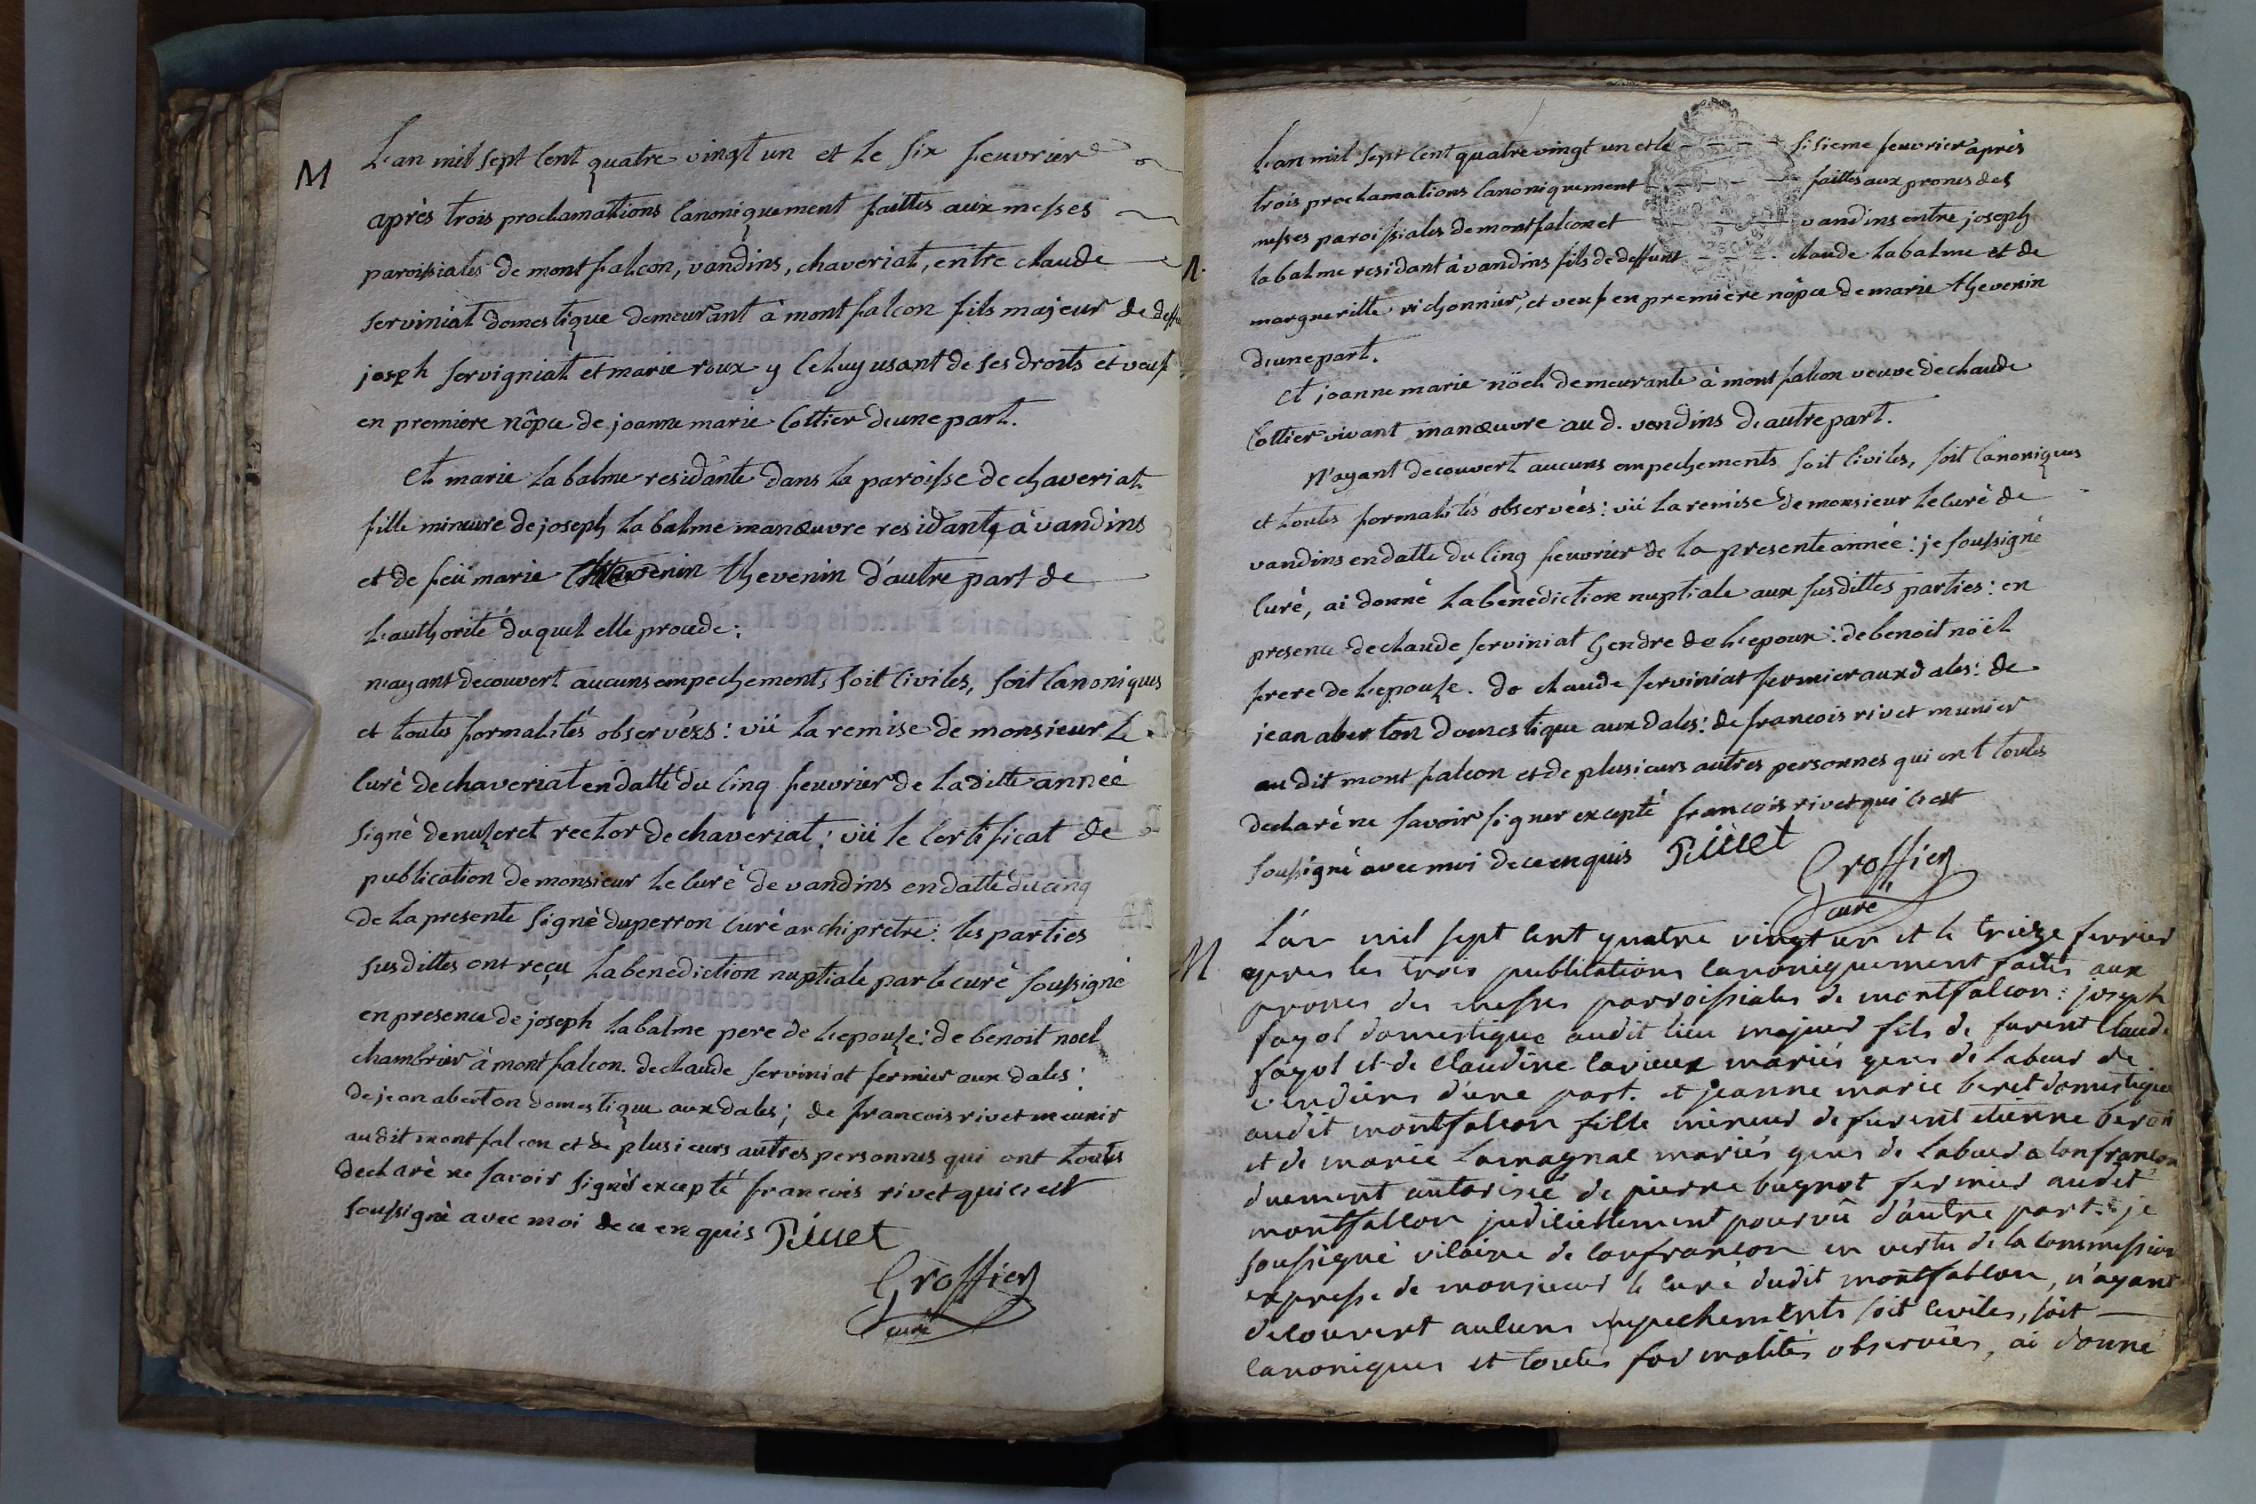 M
L'an mil sept Cent quatre vingt un et le six feuvrier
après trois proclamations Canoniquement faittes aux messes
paroissiales de montfalcon, vandins, chaveriat, entre claude
serviniat domestique demeurant à montfalcon fils majeur de deffu
joseph servigniat et marie roux y Celuy usant de ses droits et veuf
en premiere nôpce de joanne marie Cottier d'une part.
et marie la balme residânte dans la paroisse de chaveriat
fille mineure de joseph la balme manœuvre residant à vandins
et de feüe marie thevenin d'autre part de
l'authorité duquel elle procede:
n'ayant decouvert aucuns empechements soit Civiles, soit Canoniques
et toutes formalités observéés: vü la remise de monsieur le
Curé de chaveriat en datte du Cinq feuvrier de laditte année
signé denuzeret rector de chaveriat: vü le Certificat de
publication de monsieur le Curé de vandins en datte du cinq
de la presente signé duperron Curé archipretre: les parties
susdittes ont reçu la benediction nuptiale par le curé soussigné
en presence de joseph la balme pere de l'epouse: de benoit noel
chambrier à montfalcon. de claude serviniat fermier aux dales:
de jean aberton domestique aux dales; de francois rivet meunir
audit montfalcon et de plusieurs autres personnes qui ont toutes
declaré ne savoir signer excepté francois rivet qui c'est
soussigné avec moi de ce enquis Riuet
Groffier
curé
L'an mil sept Cent quatre vingt un et le sisieme feuvrier après
trois proclamations Canoniquement faittes aux prones des
messes paroissiales de montfalcon et vandins entre joseph
M
la balme residant à vandins fils de deffunt claude la balme et de
marguerille vichonnier, et veuf en premiere nôpce de marie thevenin
d'une part.
et joanne marie nöel demeurante à montfalcon veuve de claude
Cottier vivant manœuvre aud. vandins d'autre part.
N'ayant decouvert aucuns empechements soit Civiles, soit Canoniques
et toutes formalités observéés: vü la remise de monsieur le Curé de
vandins en datte du Cinq feuvrier de la presente année: je soussigné
Curé, ai donné la benediction nuptiale aux susdittes parties: en
presence de claude serviniat Gendre de l'epoux: de benoit nöel
frere de l'epouse. de claude serviniat fermier aux dales: de
jean aberton domestique aux dales: de francois rivet munier
audit montfalcon et de plusieurs autres personnes qui ont toutes
declaré ne savoir signer excepté francois rivet qui c'est
soussigné avec moi de ce enquis Riüet
Groffier
curé
M
L'an mil sept cent quatre vingt un et le treize fevrier
apres les trois publications canoniquement faites aux
prones des messes parroissiales de montfalcon: joseph
fayol domestique audit lieu majeur fils de furent Claude
fayol et de Claudine Cavieux mariés gens de labeur de
vendeins d'une part. et jeanne marie beret domestique
audit montfalcon fille mineur de furent etienne
et de marie Lamagnac mariés gens de labeur a Confrancon
duement autorisée de pierre bugnot fermier audit
montfalcon judiciellement pourvû d'autre part: je
soussigné vicaire de Confrancon en vertu de la Commission
expresse de monsieur le Curé dudit montfalcon, n'ayant
decouvert aucuns empechements soit Civiles, soit
canoniques et toutes formalités observées, ai donné